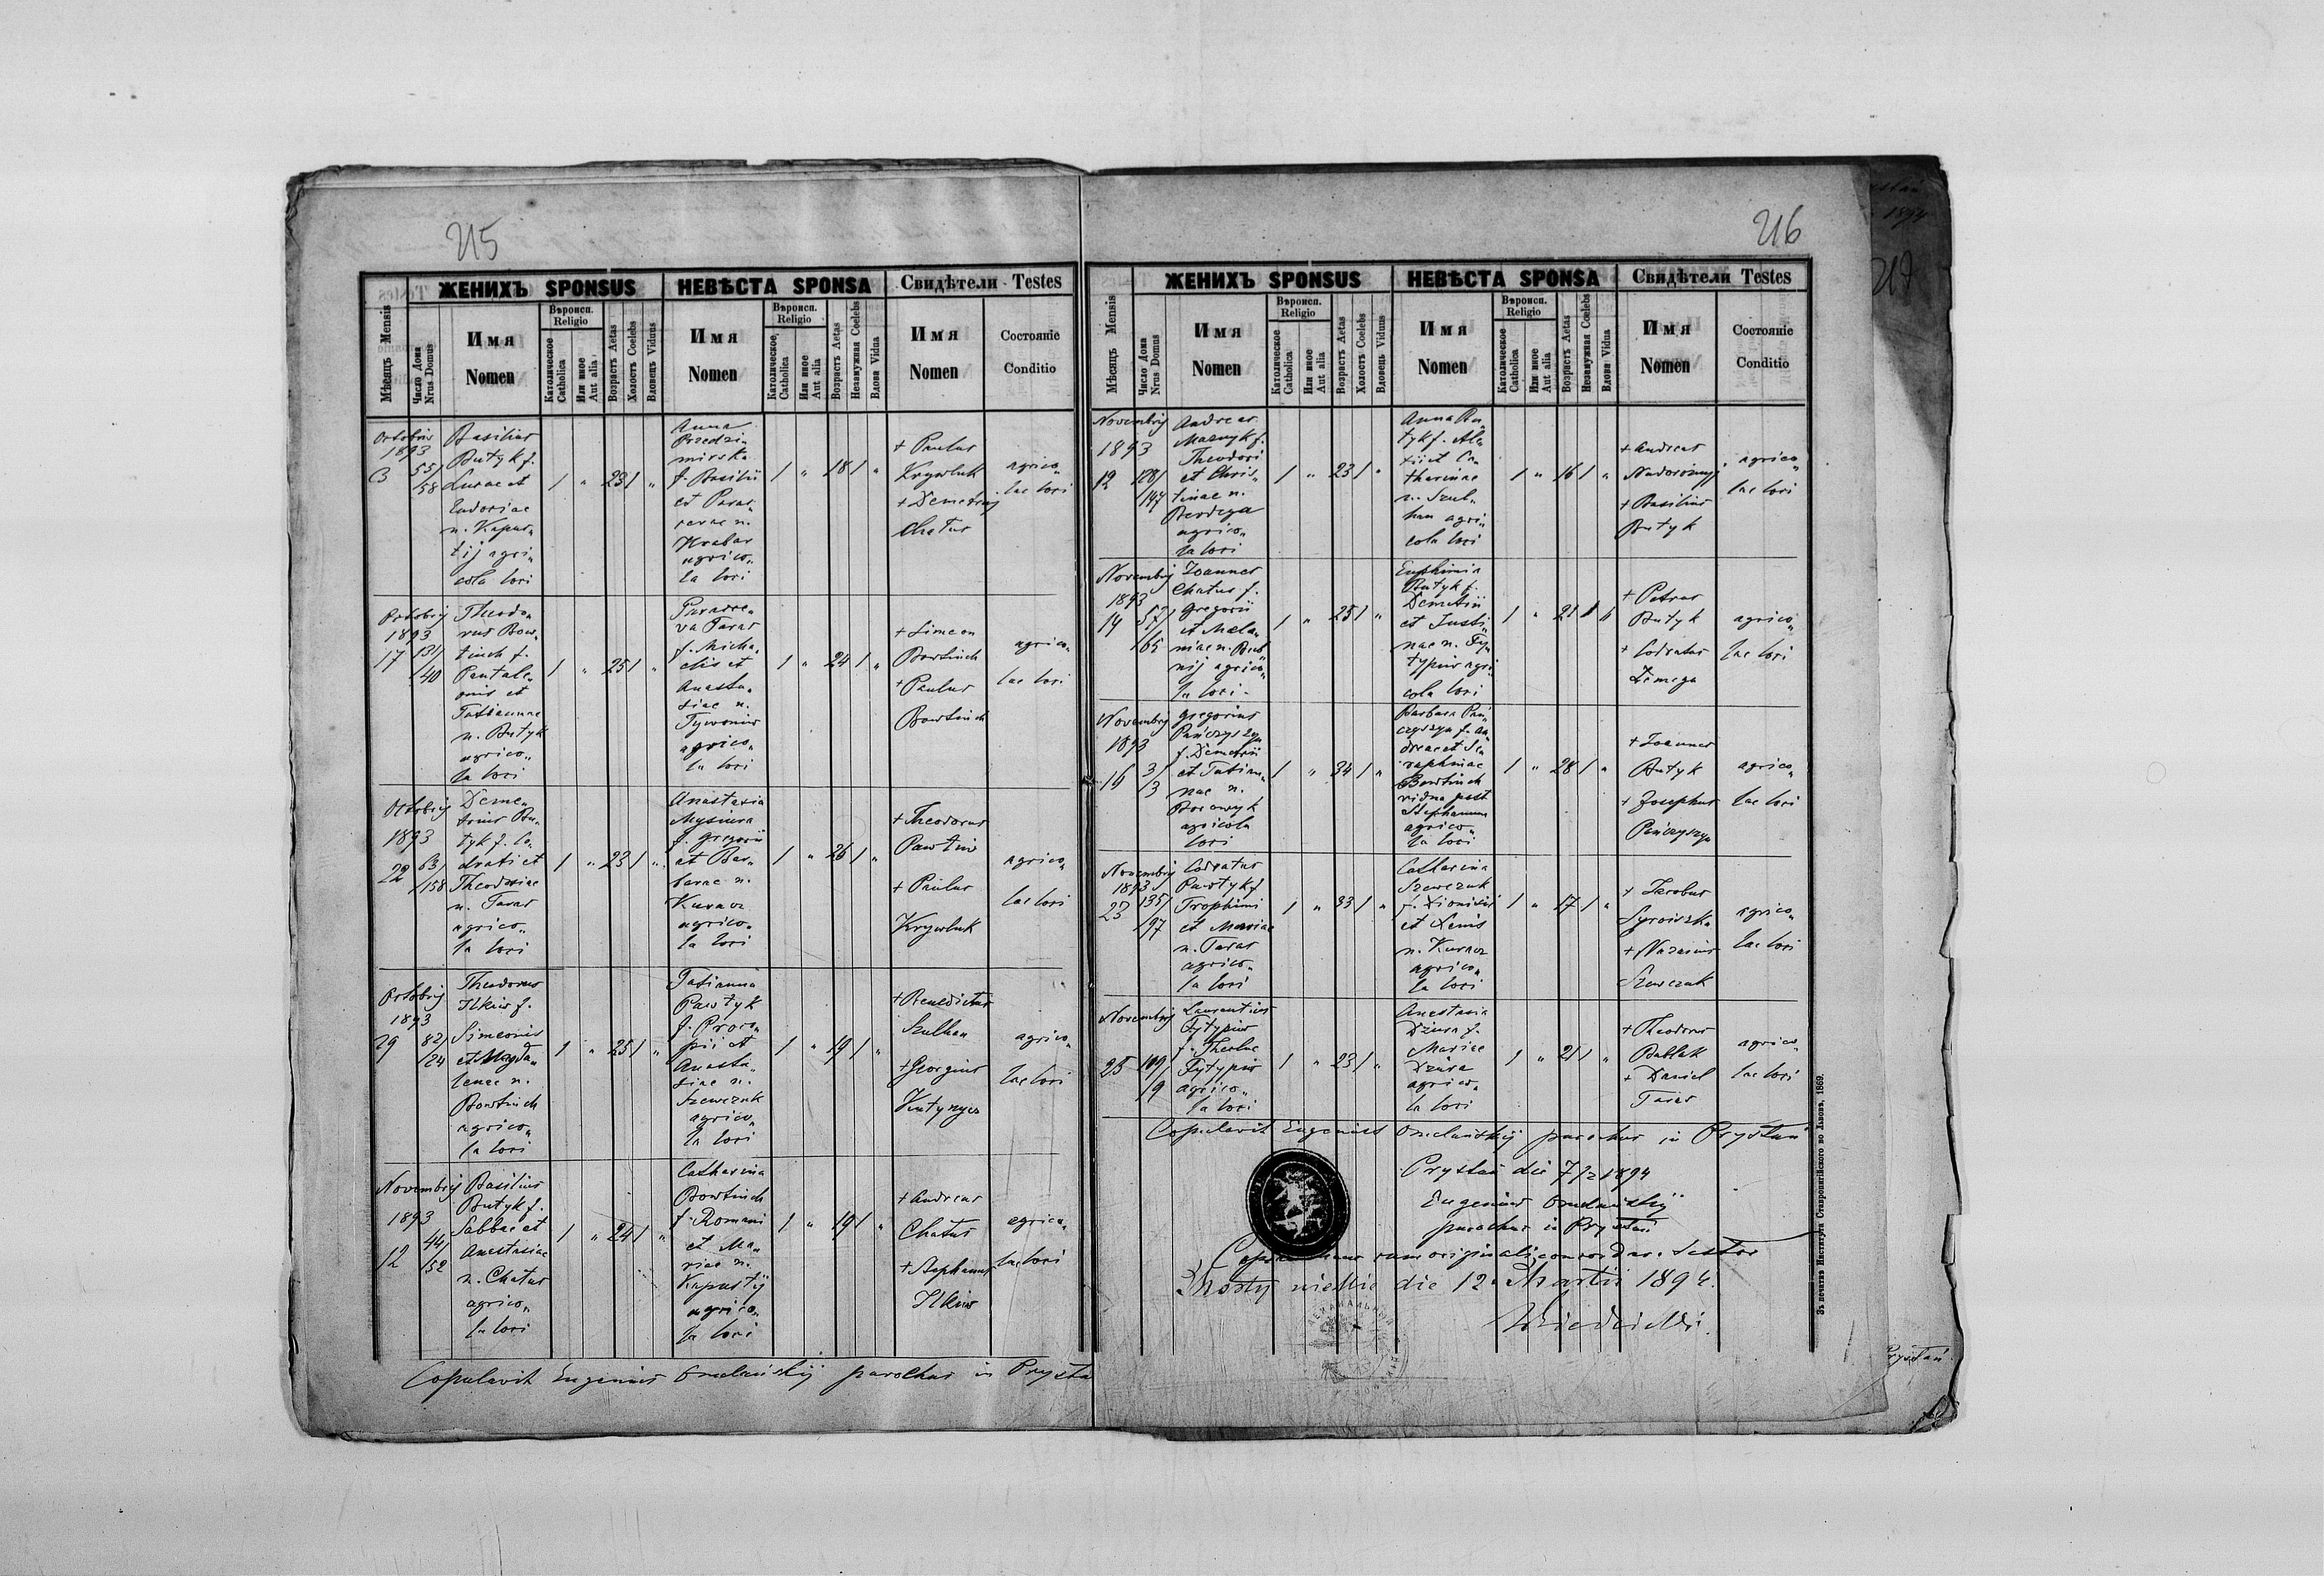 215
ЖЕНИХЪ SPONSUS
НЕВѢСТА SPONSA
Свидѣтели Testes
Мѣсяцъ Mensis
Число Дома
Nrus Domus
Имя
Nomen
Вѣроисп.
Religio
Католическое
Catholica
Или иное
Aut alia
Возрастъ Aetas
Холостъ Coelebs
Вдовецъ Viduus
Имя
Nomen
Вѣроисп.
Religio
Католическое
Catholica
Или иное
Aut alia
Возрастъ Aetas
Незамужная Coelebs
Вдова Vidua
Имя
Nomen
Состояніе
Conditio
Octobris
1893
3
55/
/58
Basilius
Butyk f.
Lucae et
Eudociae
n. Kapus„
tij agri„
cola loci
1 „ 23 1 „
Anna
Przedzi„
mirska
f. Basilii
et Paras„
cevae n.
Hrabar
agrico„
la loci
1 „ 18 1 „
+ Paulus
Krywluk
+ Demetrius
Chatus
agrico„
lae loci
Octobris
1893
17
131/
/40
Theodo„
rus Bow„
tiuch f.
Pantale„
onis et
Tatiannae
n. Butyk
agrico„
la loci
1 „ 25 1 „
Parasce„
va Taras
f. Micha„
elis et
Anasta„
siae n.
Tywoniw
agrico„
la loci
1 „ 24 1 „
+ Simeon
Bowtiuch
+ Paulus
Bowtiuch
agrico„
lae loci
Octobris
1893
22
63/
/158
Deme„
trius Bu„
tyk f. Co„
drati et
Theodosiae
n. Taras
agrico„
la loci
1 „ 23 1 „
Anastasia
f. Gregorii
et Bar„
barae n.
agrico„
la loci
1 „ 26 1 „
+ Theodorus
Pawtiw
+ Paulus
Krywluk
agrico„
lae loci
Octobris
1893
29
82/
/24
Theodorus
Ilkiw f.
Simeonis
et Magda„
lenae n.
Bowtiuch
agrico„
la loci
1 „ 25 1 „
Tatianna
Pawtyk
f. Proco„
pii et
Anasta„
siae n.
Szewczuk
agrico„
la loci
1 „ 19 1 „
+ Benedictus
Szulhan
+ Georgius
agrico„
lae loci
Novembris
1893
12
44/
/52
Basilius
Butyk f.
Sabbae et
Anastasiae
n. Chatus
agrico„
la loci
1 „ 24 1 „
Catharina
Bowtiuch
f. Romani
et Ma„
riae n.
Kapustij
agrico„
la loci
1 „ 19 1 „
+ Andreas
Chatus
+ Stephanus
Ilkiw
agrico„
lae loci
Copulavit Eugenius Omelański parochus in Prysta
216
ЖЕНИХЪ SPONSUS
НЕВѢСТА SPONSA
Свидѣтели Testes
Мѣсяцъ Mensis
Число Дома
Nrus Domus
Имя
Nomen
Вѣроисп.
Religio
Католическое
Catholica
Или иное
Aut alia
Возрастъ Aetas
Холостъ Coelebs
Вдовецъ Viduus
Имя
Nomen
Вѣроисп.
Religio
Католическое
Catholica
Или иное
Aut alia
Возрастъ Aetas
Незамужная Coelebs
Вдова Vidua
Имя
Nomen
Состояніе
Conditio
Novembris
1893
12
128/
/147
Andreas
Maznyk f.
Theodori
et Chris„
tinae n.
agrico„
la loci
1 „ 23 1 „
Anna Bu„
tyk f. Ale„
xii et Ca„
tharinae
n. Szul„
han agri„
cola loci
1 „ 16 1 „
+ Andreas
+ Basilius
Butyk
agrico„
lae loci
Novembris
1893
14
57/
/65
Joannes
Chatus f.
Gregorii
et Mela„
niae n.
agrico„
la loci
1 „ 25 1 „
Euphimia
Butyk f.
Demetrii
et Justi„
nae n. Fy„
typiw agri„
cola loci
1 „ 21 1 „
+ Petrus
Butyk
+ Codratus
Dzmega
agrico„
lae loci
Novembris
1893
16
3/
/3
Gregorius
Pańczyszyn
f. Demetrii
et Tatian„
nae n.
agricola
loci
1 „ 34 1 „
Barbara Pań„
czyszyn f. An„
dreae et Se„
raphinae
Bowtiuch
vidua post
Stephanum
agrico„
la loci
1 „ 28 1 „
+ Joannes
Butyk
+ Josephus
Pańczyszyn
agrico„
lae loci
Novembris
1893
23
135/
/97
Codratus
Pawtyk f.
Trophimi
et Mariae
n. Taras
agrico„
la loci
1 „ 33 1 „
Catharina
Szewczuk
f. Dionisii
et Xeniae
agrico„
la loci
1 „ 17 1 „
+ Jacobus
Syroiszka
+ Nazarius
Szewczuk
agrico„
lae loci
Novembris
25
109/
/9
Laurentius
Fytypiw
f. Theclae
Fytypiw
agrico„
la loci
1 „ 23 1 „
Anastasia
Dziura f.
Mariae
Dziura
agrico„
la loci
1 „ 21 1 „
+ Theodorus
Bablak
+ Daniel
Taras
agrico„
lae loci
Copulavit Eugenius Omelański parochus in Prystań
Prystań die 7/2 1894
Eugenius Omelański
parochus in Prystań
cum originali concordare testor
Mosty wielkie die 12 Martii 1894.
Зъ печатнѣ Института Ставропигійского во Львовѣ, 1869.
1894
217